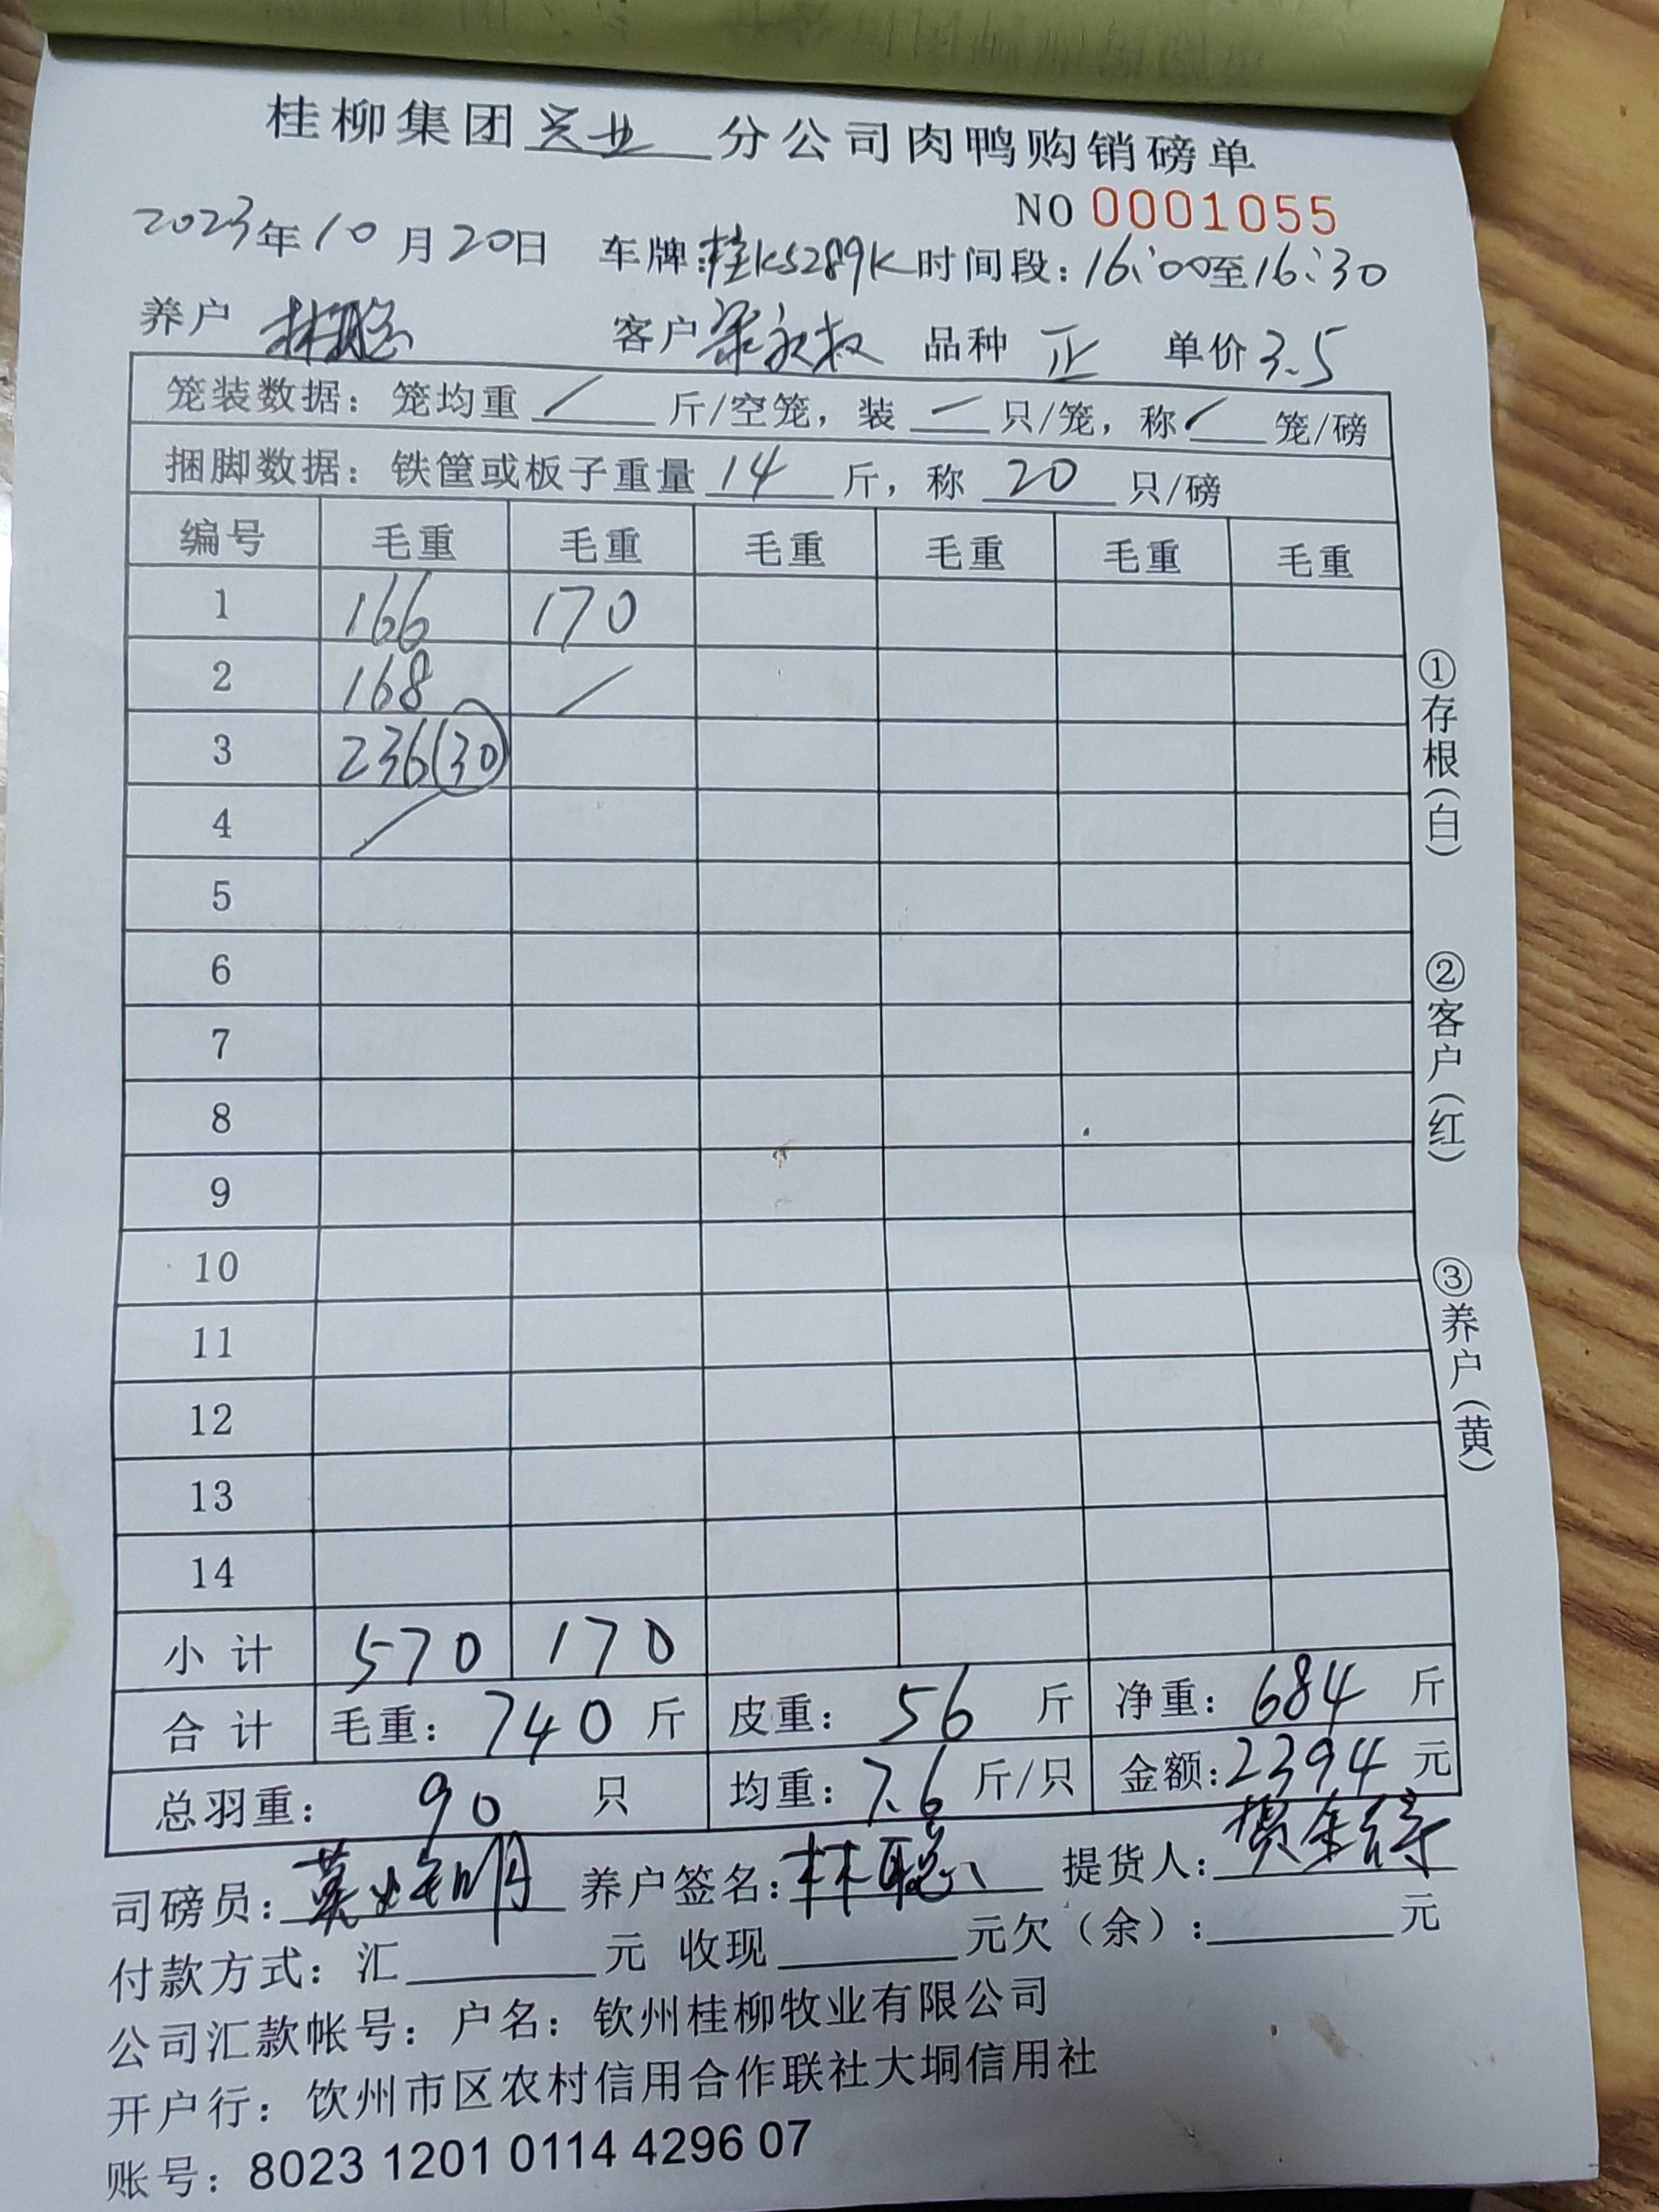 桂柳集团兴业分公司肉鸭购销磅单
NO 0001055
2023年10月20日 车牌:桂K5289K 时间段:16:00至16:30
养户 林聪 客户 永权 品种 正 单价3.5
笼装数据:笼均重 / 斤/空笼,装 / 只/笼,称 / 笼/磅
捆脚数据:铁筐或板子重量 14 斤,称 20 只/磅
编号 毛重 毛重 毛重 毛重 毛重 毛重
1 166 170
2 168 /
3 236(30)
4 /
5
6
7
8
9
10
11
12
13
14
小计 570 170
合计 毛重:740斤 皮重:56斤 净重:684斤
总羽重:90只 均重:7.6斤/只 金额:2394元
司磅员:莫明 养户签名:林聪 提货人:
付款方式:汇 元 收现 元欠(余): 元
公司汇款帐号:户名:钦州桂柳牧业有限公司
开户行:钦州市区农村信用合作联社大垌信用社
账号:8023 1201 0114 4296 07
①存根(白)
②客户(红)
③养户(黄)